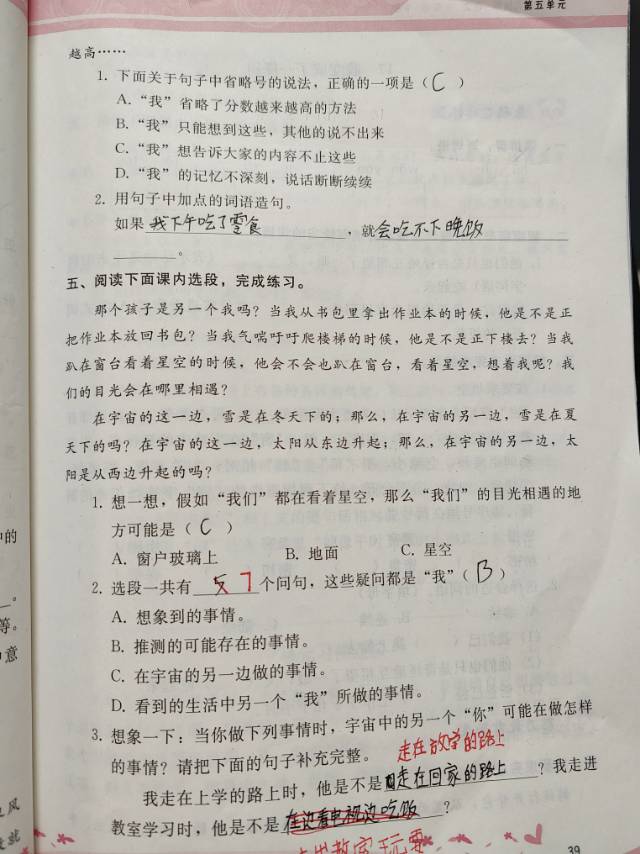 第五单元
越高……
1. 下面关于句子中省略号的说法，正确的一项是（C）
A.“我”省略了分数越来越高的方法
B.“我”只能想到这些，其他的说不出来
C.“我”想告诉大家的内容不止这些
D.“我”的记忆不深刻，说话断断续续
2. 用句子中加点的词语造句。
如果我下午吃了零食，就会吃不下晚饭
。
五、阅读下面课内选段，完成练习。
那个孩子是另一个我吗？当我从书包里拿出作业本的时候，他是不是正
把作业本放回书包？当我气喘吁吁爬楼梯的时候，他是不是正下楼去？当我
趴在窗台看着星空的时候，他会不会也趴在窗台，看着星空，想着我呢？我
们的目光会在哪里相遇？
在宇宙的这一边，雪是在冬天下的；那么，在宇宙的另一边，雪是在夏
天下的吗？在宇宙的这一边，太阳从东边升起；那么，在宇宙的另一边，太
阳是从西边升起的吗？
1. 想一想，假如“我们”都在看着星空，那么“我们”的目光相遇的地
方可能是（C）
A. 窗户玻璃上 B. 地面 C. 星空
2. 选段一共有 7 个问句，这些疑问都是“我”（B）
A. 想象到的事情。
B. 推测的可能存在的事情。
C. 在宇宙的另一边做的事情。
D. 看到的生活中另一个“我”所做的事情。
3. 想象一下：当你做下列事情时，宇宙中的另一个“你”可能在做怎样
的事情？请把下面的句子补充完整。 走在放学的路上
我走在上学的路上时，他是不是走在回家的路上？我走进
教室学习时，他是不是在边看电视边吃饭？
教室玩耍
39
的
。
等。
意
风
就